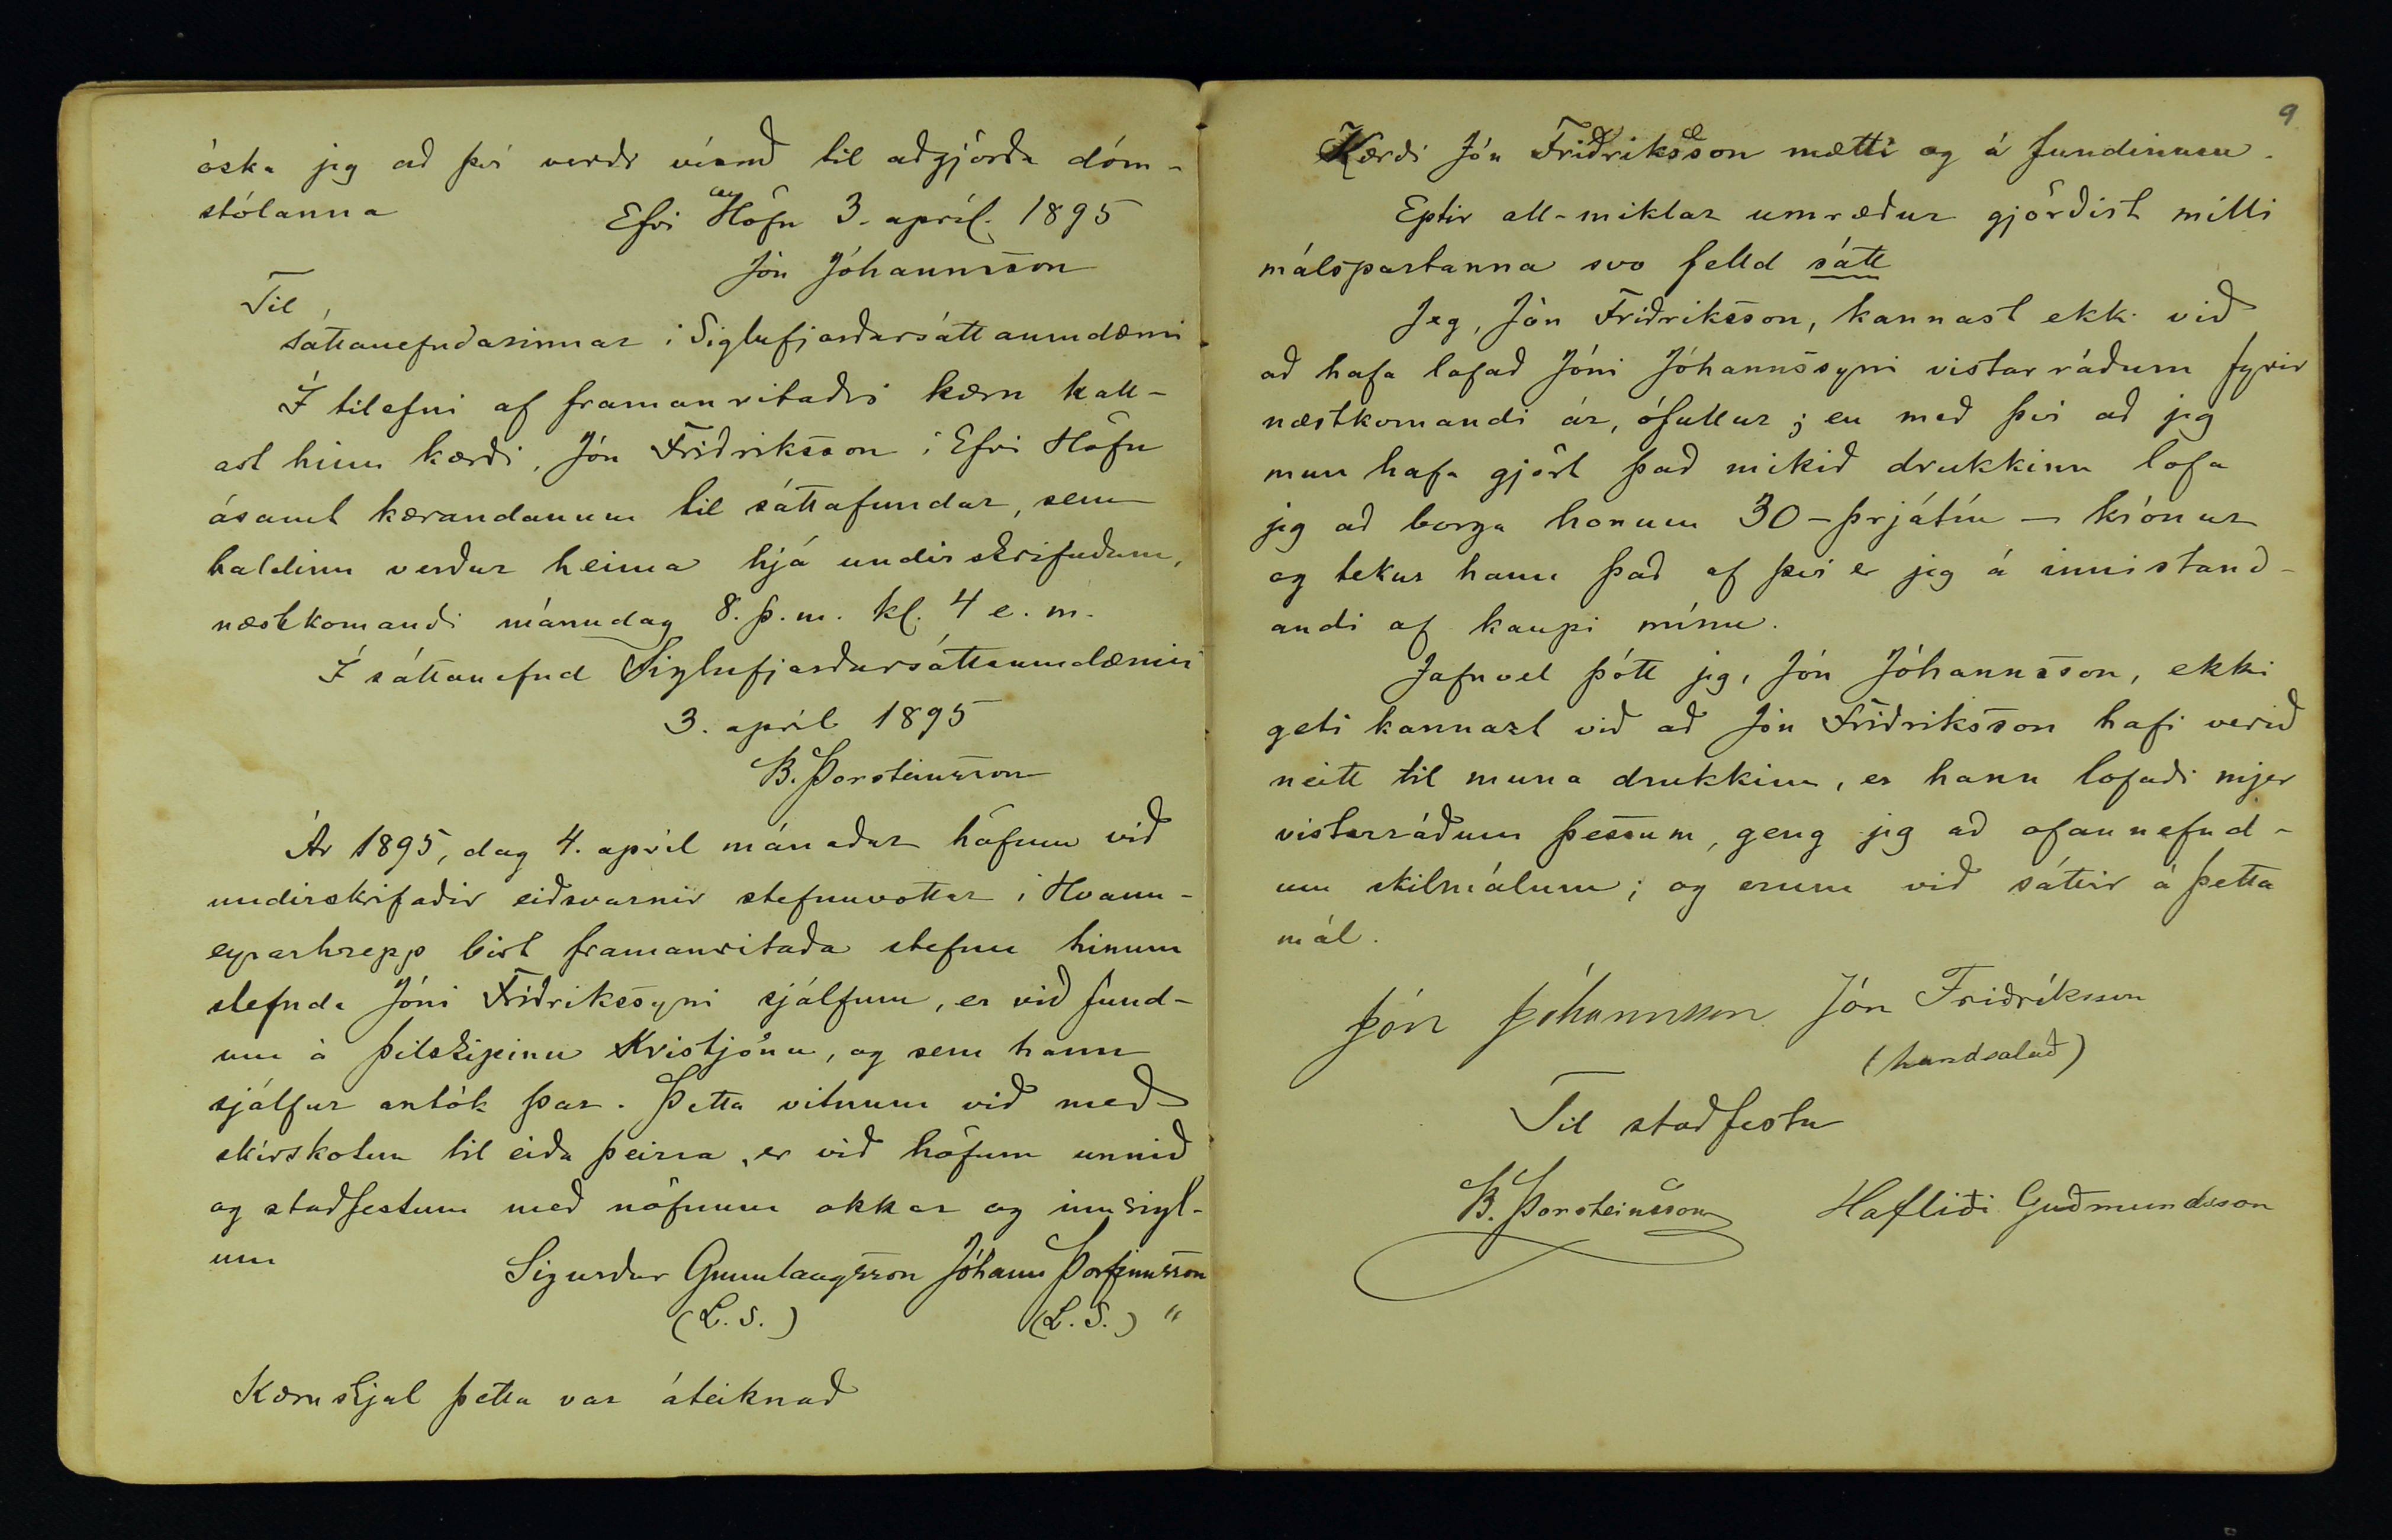 óska jeg að því verði vísað til aðgjörða dóm-
stólanna
Efri Höfn 3. apríl. 1895
Jón Jóhannsson
Til
sáttanefndarinnar í Siglufjarðarsáttaumdæmi
Í tilefni af framanritaðri kæru kall-
ast hinn kærði, Jón Friðriksson í Efri Höfn
ásamt kærandanum til sáttafundar, sem
haldinn verður heima hjá undirskrifuðum,
næstkomandi mánudag 8. þ. m. kl. 4 e. m.
Í sáttanefnd Siglufjarðarsáttaumdæmis
3. apríl 1895
B. Þorsteinsson
Ár 1895, dag 4. apríl mánaðar höfum við
undirskrifaðir eiðsvarnir stefnuvottar í Hvann-
eyrarhrepp birt framanritaða stefnu hinum
stefnda Jóni Friðrikssyni sjálfum, er við fund-
um á þilskipinu Kristjönu, og sem hann
sjálfur antók þar. Þetta vitnum við með
skírskotun til eiða þeirra, er við höfum unnið
og staðfestum með nöfnum okkar og innsigl-
um
Sigurður Gunnlaugsson Jóhann Þorfinnsson
(L. S.) (L. S.) "
Kæruskjal þetta var áteiknað
9
Kærði Jón Friðriksson mætti og á fundinum.
Eptir all-miklar umræður gjörðist milli
málspartanna svo felld sátt
Jeg, Jón Friðriksson, kannast ekki við
að hafa lofað Jóni Jóhannssyni vistarráðum fyrir
næstkomandi ár, ófullur; en með því að jeg
mun hafa gjört það mikið drukkinn lofa
jeg að borga honum 30 - þrjátíu - krónur
og tekur hann það af því er jeg á innistand-
andi af kaupi mínu.
Jafnvel þótt jeg, Jón Jóhannsson, ekki
geti kannazt við að Jón Friðriksson hafi verið
neitt til muna drukkinn, er hann lofaði mjer
vistarráðum þessum, geng jeg að ofannefnd-
um skilmálum; og erum við sáttir á þetta
mál.
Jón Jóhannsson Jón Friðriksson
(handsalað)
Til staðfestu
B. Þorsteinsson Hafliði Guðmundsson